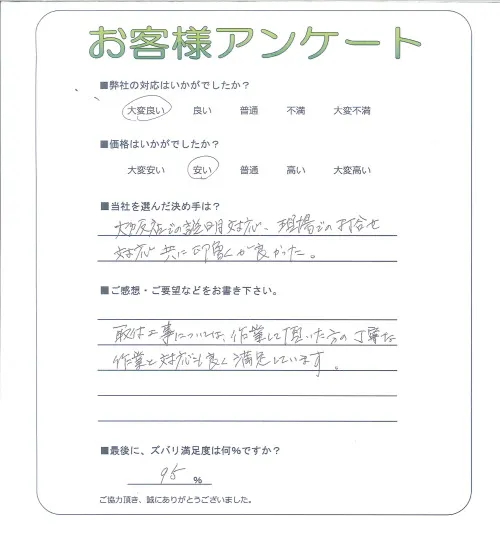 お客様アンケート
■弊社の対応はいかがでしたか？
大変良い 良い 普通 不満 大変不満
■価格はいかがでしたか？
大変安い 安い 普通 高い 大変高い
■当社を選んだ決め手は？
支店での説明対応、現場での打合せ
対応共に印象が良かった。
■ご感想・ご要望などをお書き下さい。
取付工事については、作業して頂いた方の丁寧な
作業と対応も良く満足しています。
■最後に、ズバリ満足度は何％ですか？
95 ％
ご協力頂き、誠にありがとうございました。